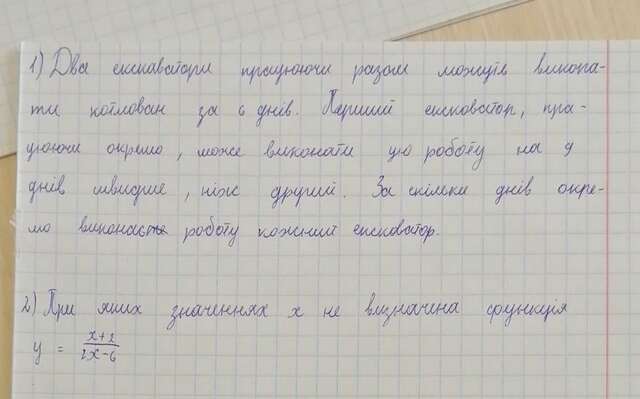 1) Два екскаватори працюючи разом можуть викопа-
ти котлован за 6 днів. Перший ексковатор, пра-
цюючи окремо, може виконати цю роботу на 9
днів швидше, ніж другий. За скільки днів окре-
мо виконає роботу кожний ексковатор.
2) При яких значеннях x не визначена функція
y = \frac{x+2}{2x-6}